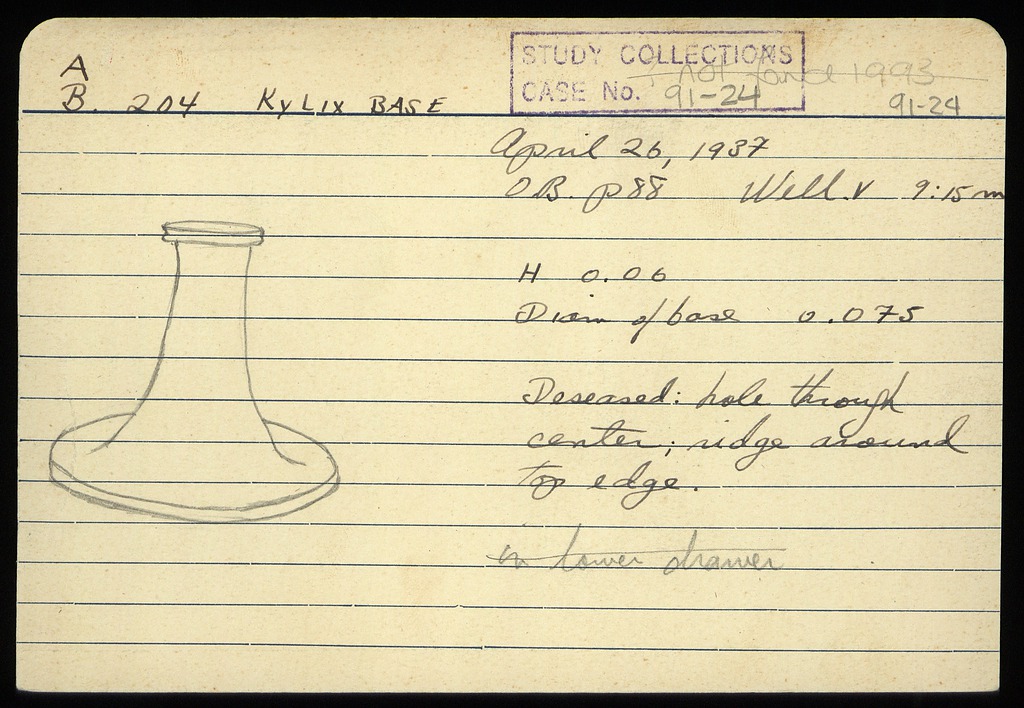 A
B. 204 KYLIX BASE
STUDY COLLECTIONS
CASE No. 91-24
not found 1993
91-24
April 26, 1937
O.B. p 88 Well. V 9:15 m
H 0.06
Diam of base 0.075
Deseased: hole through
center; ridge around
top edge.
in lower drawer